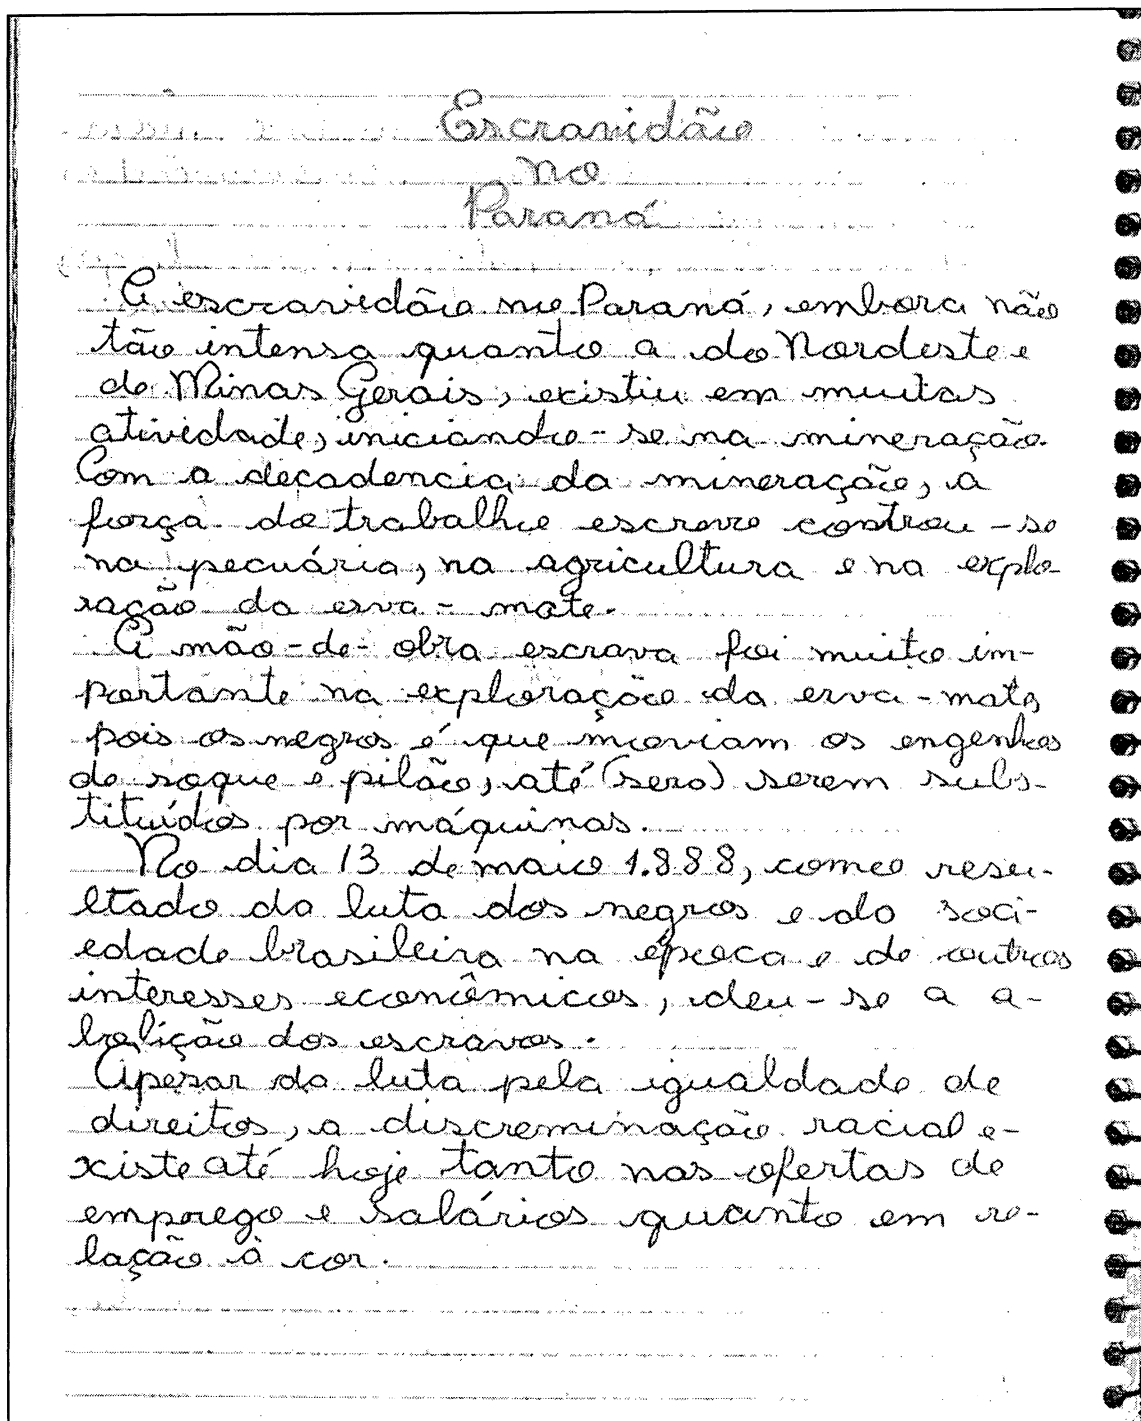 Escravidão
no
Paraná
A escravidão no Paraná, embora não
tão intensa quanto a do Nordeste e
de Minas Gerais, existiu em muitas
atividade, iniciando-se na mineração.
Com a decadencia da mineração, a
força de trabalho escravo controu-se
na pecuária, na agricultura e na explo-
ração da erva-mate.
A mão-de-obra escrava foi muito im-
portante na exploração da erva-mate,
pois os negros é que moviam os engenhos
de soque e pilão, até (sero) serem subs-
tituídos por máquinas.
No dia 13 de maio 1.888, como resu-
ltado da luta dos negros e da soci-
edade brasileira na época e de outros
interesses econômicos, deu-se a a-
bolição dos escravos.
Apesar da luta pela igualdade de
direitos, a discreminação racial e-
xiste até hoje tanto nas ofertas de
emprego e salários quanto em re-
lação à cor.